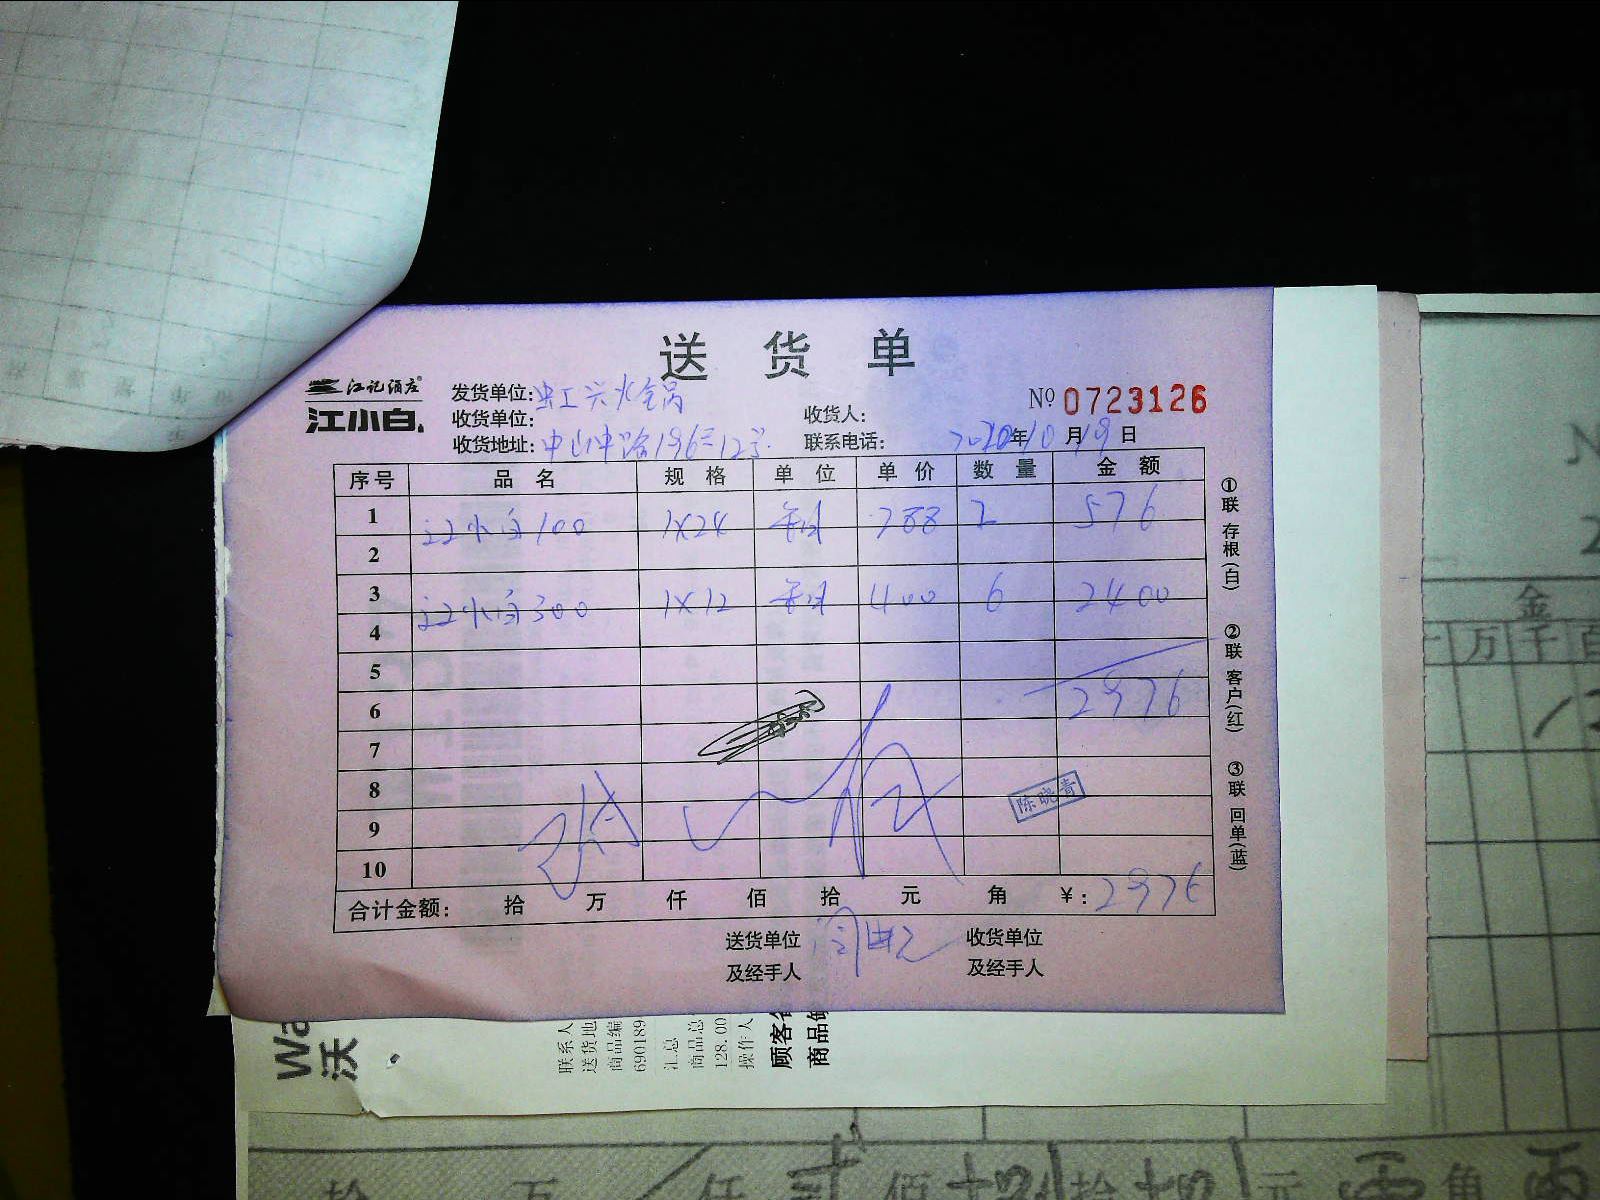 送 货 单
江记酒庄
江小白
发货单位: 虹兴火锅
№ 0723126
收货单位:
收货人:
收货地址: 中山中路196号12号
联系电话:
2020年10月19日
序号 品 名 规 格 单 位 单 价 数 量 金 额
1 江小白100 1×24 箱 288 2 576
2
3 江小白300 1×12 箱 400 6 2400
4
5
6 2976
7
8 陈晓青
9
10
合计金额: 拾 万 仟 佰 拾 元 角 ¥: 2976
送货单位
及经手人
收货单位
及经手人
①联 存根(白)
②联 客户(红)
③联 回单(蓝)
Wa
沃
联系人
送货地
商品编
690189
汇总
商品总
128.00
操作人
顾客
商品
金
万 千 百
拾 万 仟 佰 拾 元 角